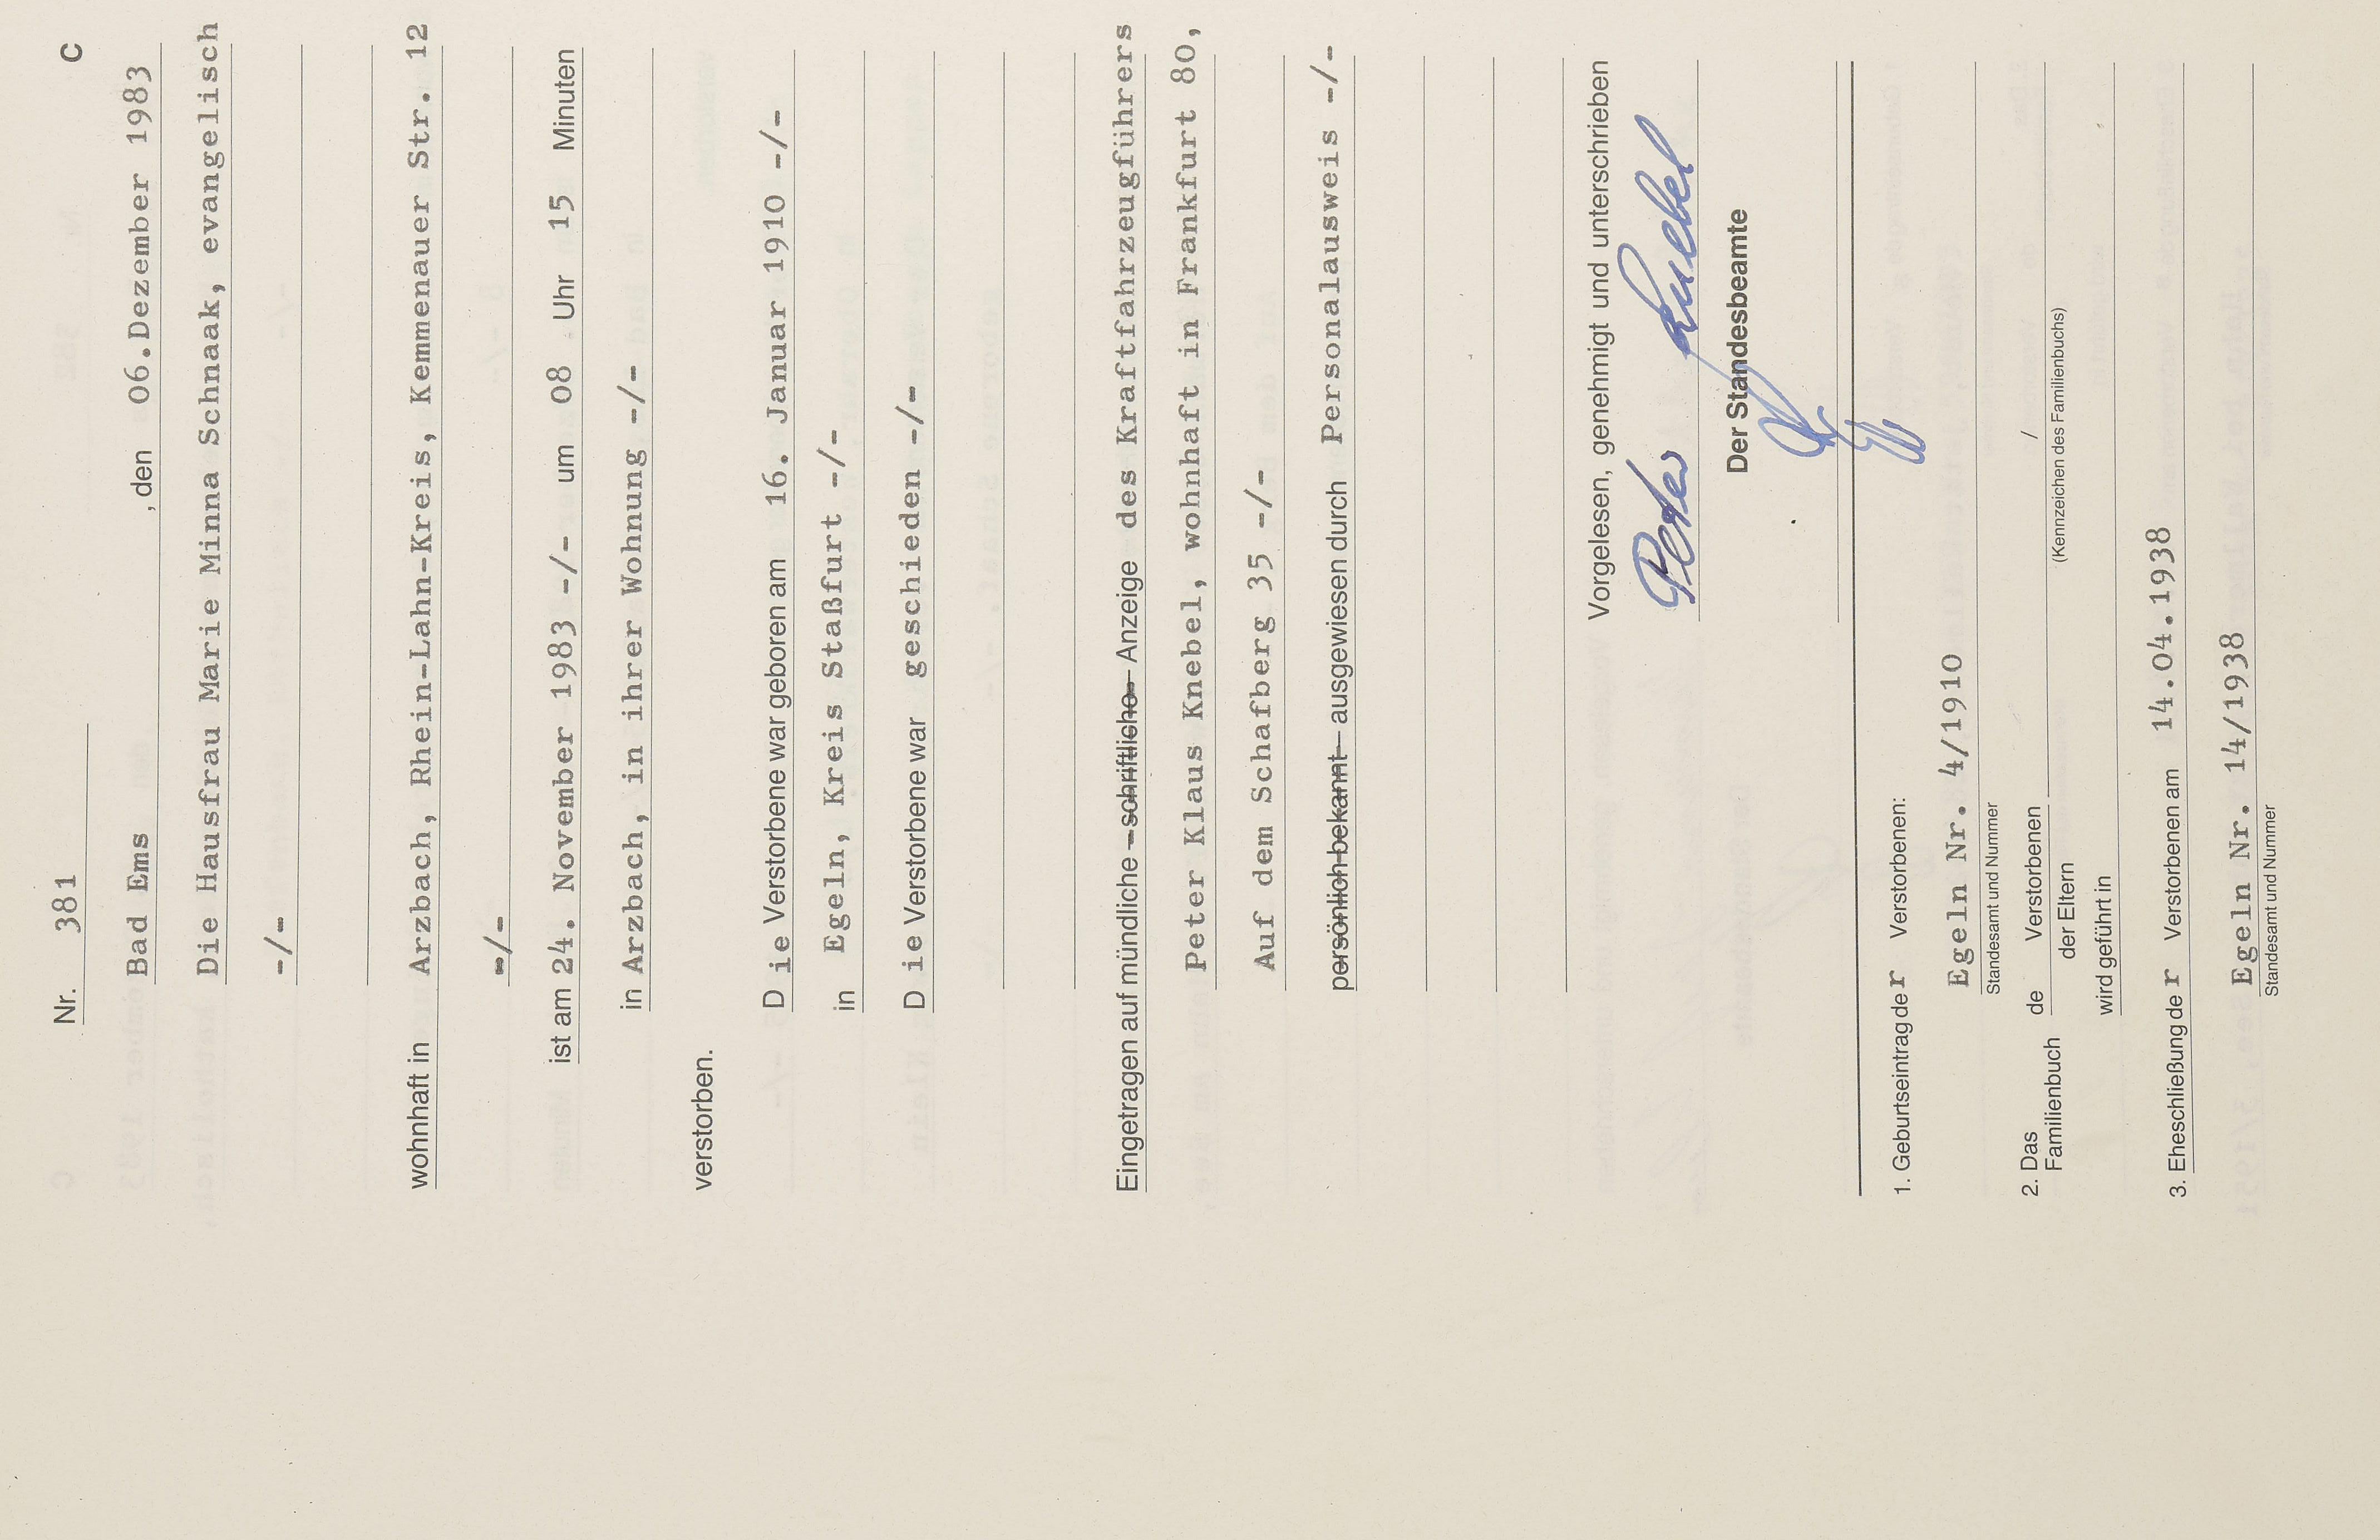 Nr. 381 C
Bad Ems , den 06.Dezember 1983
Die Hausfrau Marie Minna Schnaak, evangelisch
-/-
wohnhaft in Arzbach, Rhein-Lahn-Kreis, Kemmenauer Str. 12
-/-
ist am 24. November 1983 -/- um 08 Uhr 15 Minuten
in Arzbach, in ihrer Wohnung -/-
verstorben.
Die Verstorbene war geboren am 16. Januar 1910 -/-
in Egeln, Kreis Staßfurt -/-
Die Verstorbene war geschieden -/-
Eingetragen auf mündliche – schriftliche – Anzeige des Kraftfahrzeugführers
Peter Klaus Knebel, wohnhaft in Frankfurt 80,
Auf dem Schafberg 35 -/-
persönlich bekannt – ausgewiesen durch Personalausweis -/-
Vorgelesen, genehmigt und unterschrieben
Peter Knebel
Der Standesbeamte
1. Geburtseintrag der Verstorbenen:
Egeln Nr. 4/1910
Standesamt und Nummer
2. Das Familienbuch de Verstorbenen /
der Eltern (Kennzeichen des Familienbuchs)
wird geführt in
3. Eheschließung der Verstorbenen am 14.04.1938
Egeln Nr. 14/1938
Standesamt und Nummer